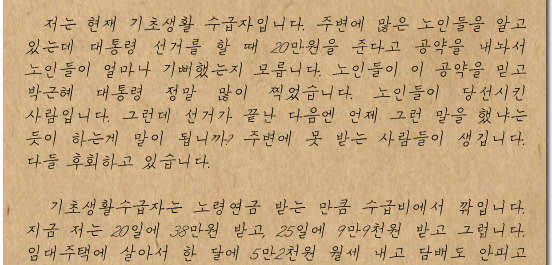 저는 현재 기초생활 수급자입니다. 주변에 많은 노인들을 알고
있는데 대통령 선거를 할 때 20만원을 준다고 공약을 내놔서
노인들이 얼마나 기뻐했는지 모릅니다. 노인들이 이 공약을 믿고
박근혜 대통령 정말 많이 찍었습니다. 노인들이 당선시킨
사람입니다. 그런데 선거가 끝난 다음엔 언제 그런 말을 했냐는
듯이 하는게 말이 됩니까? 주변에 못 받는 사람들이 생깁니다.
다들 후회하고 있습니다.
기초생활수급자는 노령연금 받는 만큼 수급비에서 깎입니다.
지금 저는 20일에 38만원 받고, 25일에 9만9천원 받고 그럽니다.
임대주택에 살아서 한 달에 5만2천원 월세 내고 담배도 안피고